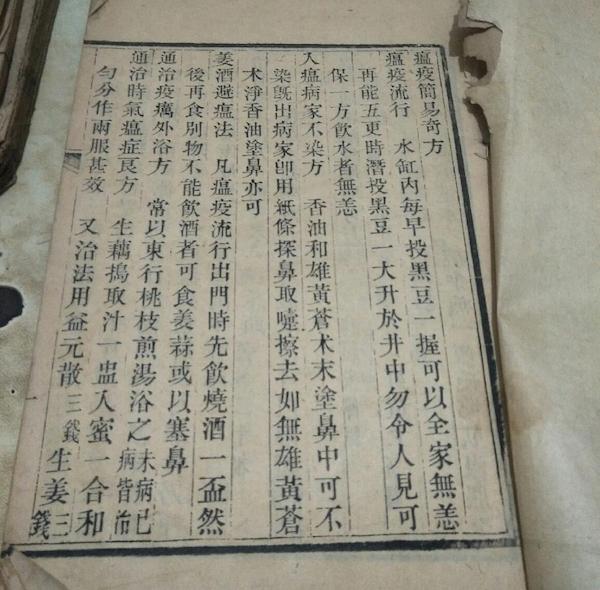 瘟疫簡易奇方
瘟疫流行 水缸內每早投黑豆一握可以全家無恙
再能五更時潛投黑豆一大升於井中勿令人見可
保一方飲水者無恙
入瘟病家不染方 香油和雄黃蒼术末塗鼻中可不
染旣出病家卽用紙條探鼻取嚏擦去如無雄黃蒼
术淨香油塗鼻亦可
姜酒避瘟法 凡瘟疫流行出門時先飲燒酒一盃然
後再食別物不能飲酒者可食姜蒜或以塞鼻
通治疫癘外浴方 常以東行桃枝煎湯浴之未病已病皆治
通治時氣瘟症良方 生藕搗取汁一盅入蜜一合和
勻分作兩服甚效 又治法用益元散三錢生姜三錢